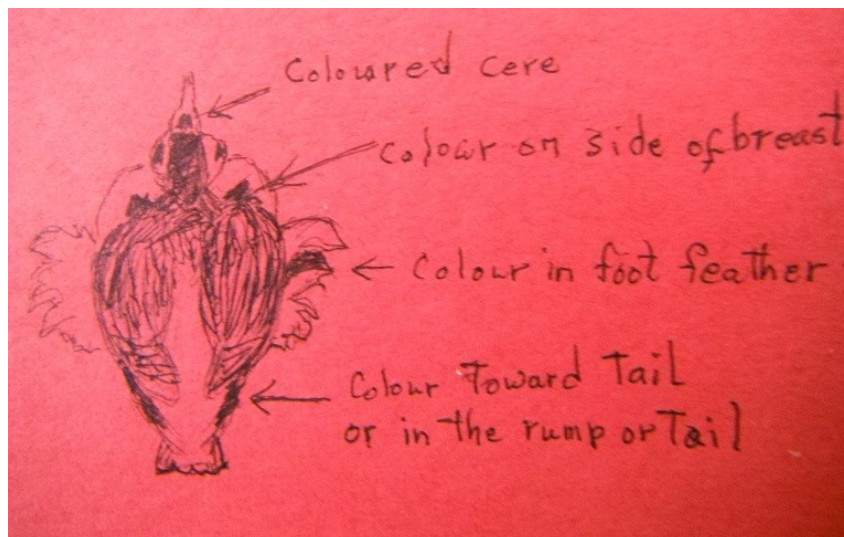 Coloured cere
Colour on side of breast
Colour in foot feather
Colour Toward Tail
or in the rump or Tail